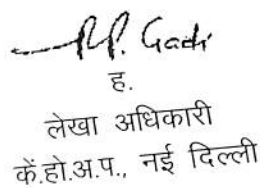 M. Gadi
ह.
लेखा अधिकारी
कें.हो.अ.प., नई दिल्ली